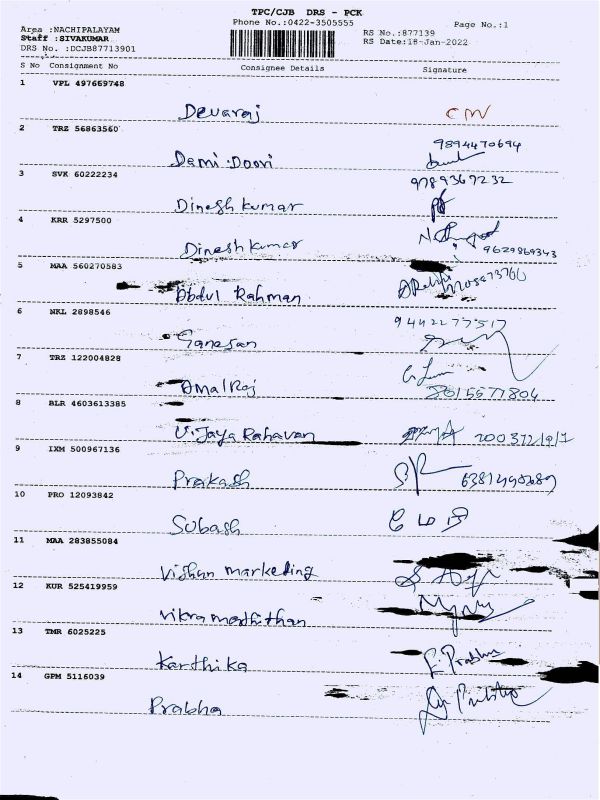 TPC/CJB DRS - PCK
Phone No.:0422-3505555
Page No.:1
Area :NACHIPALAYAM
Staff :SIVAKUMAR
DRS No. :DCJB87713901
RS No.:877139
RS Date:18-Jan-2022
S No Consignment No Consignee Details Signature
1 VPL 497669748
Devaraj
2 TRZ 56863560
9894470694
Demi Doori
3 SVK 60222234
9789367232
Dinesh kumar
4 KRR 5297500
Dinesh kumar
9629869343
5 MAA 560270583
Abdul Rahman
6 NKL 2898546
9442277517
Ganesan
7 TRZ 122004828
Amal Raj
8 BLR 4603613385
Vijaya Rahavan
9 IXM 500967136
Prakash
10 PRO 12093842
Subash
11 MAA 283855084
Vishnu marketing
12 KUR 525419959
Vikramathithan
13 TMR 6025225
Karthika
14 GPM 5116039
Prabha